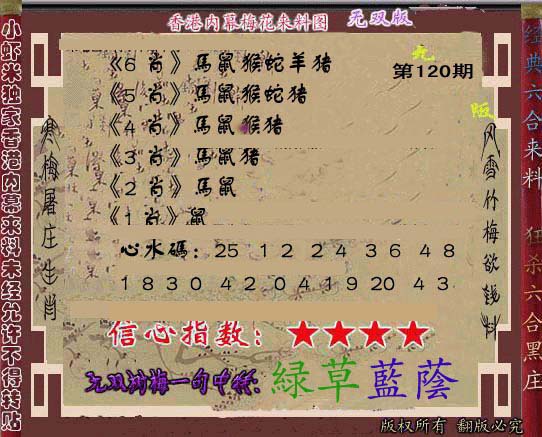 香港内幕梅花来料图 无双版
九
第120期
版
《6 肖》馬鼠猴蛇羊猪
《5 肖》馬鼠猴蛇猪
《4 肖》馬鼠猴猪
《3 肖》馬鼠猪
《2 肖》馬鼠
《1 肖》鼠
心水碼：25 12 24 36 48
18 30 42 04 19 20 43
信心指数：★★★★
无双湘梅一句中特:緑草藍蔭
版权所有 翻版必究
小虾米独家香港内幕来料未经允许不得转贴
寒梅屠庄生肖
风雪竹梅欲钱料
经典六合来料 狂杀六合黑庄